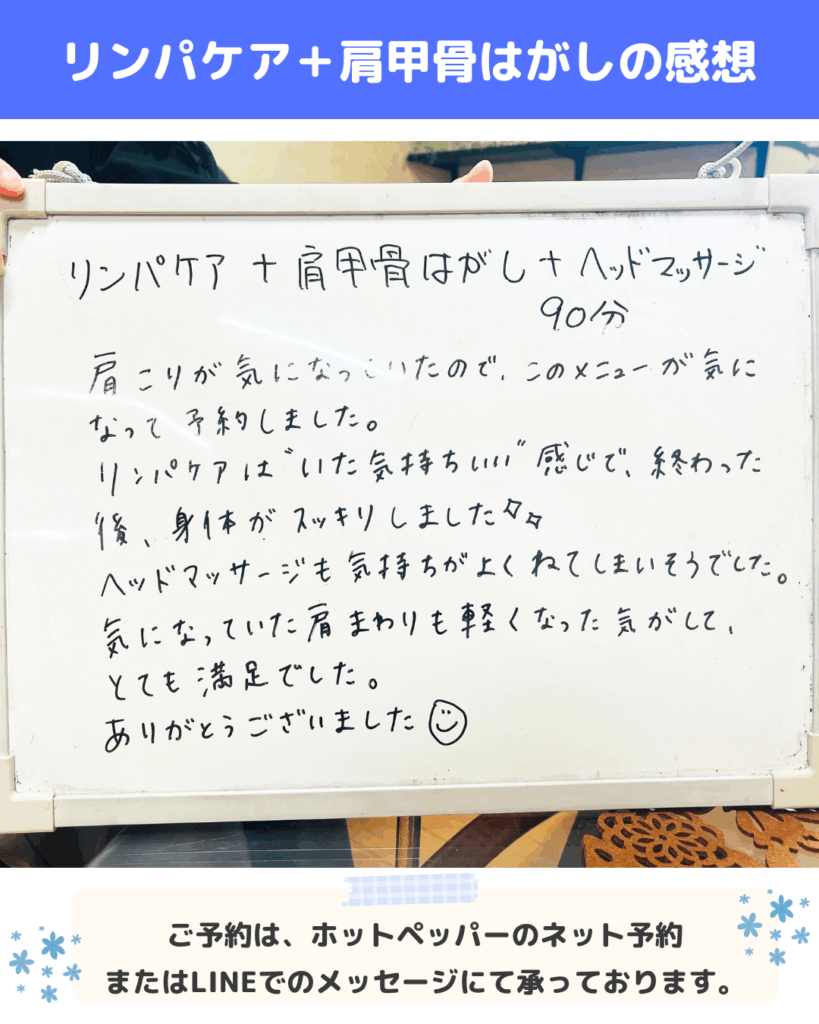 リンパケア＋肩甲骨はがしの感想
リンパケア + 肩甲骨はがし + ヘッドマッサージ
90分
肩こりが気になっていたので、このメニューが気に
なって予約しました。
リンパケアは"いた気持ちいい"感じで、終わった
後、身体がスッキリしました✨
ヘッドマッサージも気持ちがよくねてしまいそうでした。
気になっていた肩まわりも軽くなった気がして、
とても満足でした。
ありがとうございました☺
ご予約は、ホットペッパーのネット予約
またはLINEでのメッセージにて承っております。